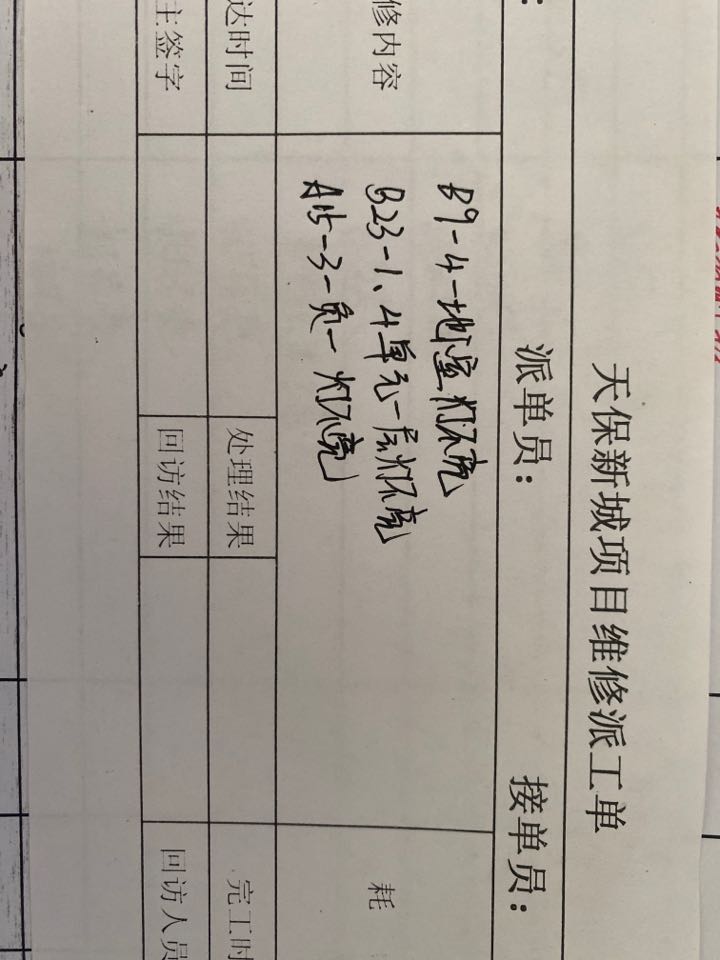 天保新城项目维修派工单
派单员： 接单员：
修内容
B9-4-地室灯不亮
B23-1、4单元一层灯不亮
A15-3-负一灯不亮
耗
达时间 处理结果 完工时
主签字 回访结果 回访人员